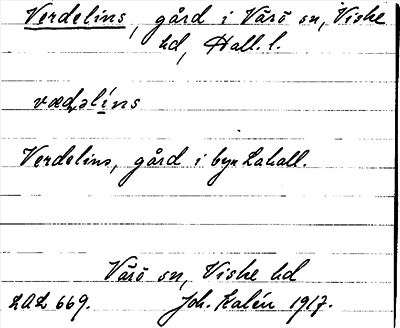 Verdelins, gård i Värö sn, Viske
hd, Hall. l.
væḍəlíns
Verdelins, gård i byn Lahall.
Värö sn, Viske hd
LAL 669. Joh. Kalén 1917.